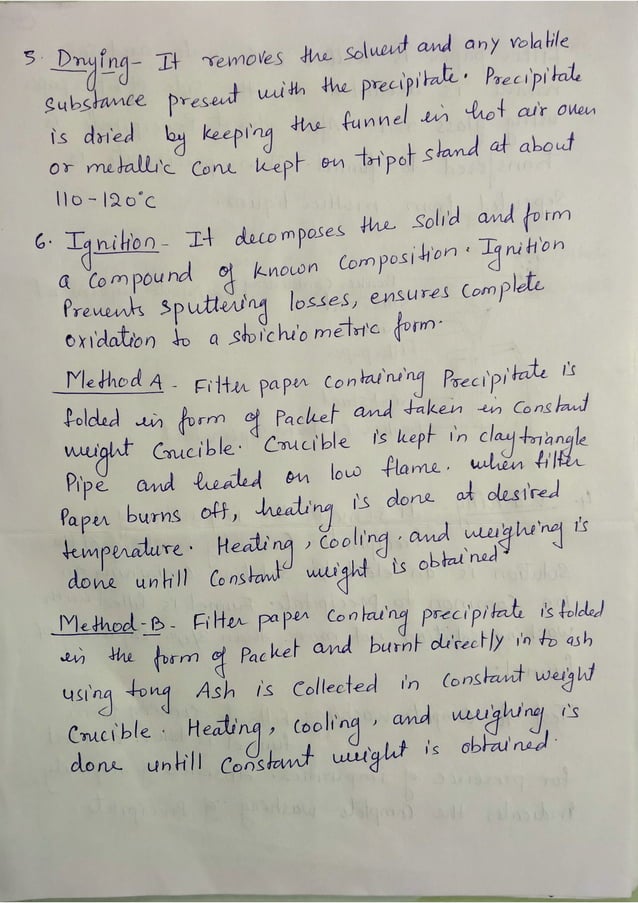 5. Drying- It removes the solvent and any volatile
substance present with the precipitate. Precipitate
is dried by keeping the funnel in hot air oven
or metallic cone kept on tripot stand at about
110-120°C
6. Ignition - It decomposes the solid and form
a compound of known composition. Ignition
Prevents sputtering losses, ensures complete
oxidation to a stoichiometric form.
Method A - Filter paper containing Precipitate is
folded in form of Packet and taken in constant
weight Crucible. Crucible is kept in clay triangle
Pipe and heated on low flame. when filter
Paper burns off, heating is done at desired
temperature. Heating, cooling, and weighing is
done untill constant weight is obtained
Method-B - Filter paper containg precipitate is folded
in the form of Packet and burnt directly in to ash
using tong Ash is Collected in constant weight
Crucible. Heating, cooling, and weighing is
done untill constant weight is obtained.